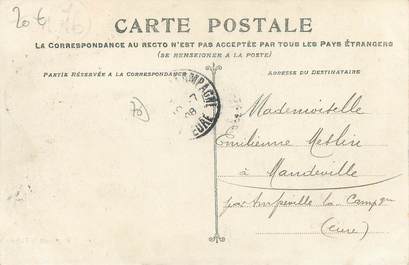 20 €
CARTE POSTALE
LA CORRESPONDANCE AU RECTO N'EST PAS ACCEPTÉE PAR TOUS LES PAYS ÉTRANGERS
(SE RENSEIGNER A LA POSTE)
PARTIE RÉSERVÉE A LA CORRESPONDANCE
ADRESSE DU DESTINATAIRE
CAMPAGNE
EURE
Mademoiselle
Emilienne
à Mandeville
par Amfreville la Campgne
(Eure)